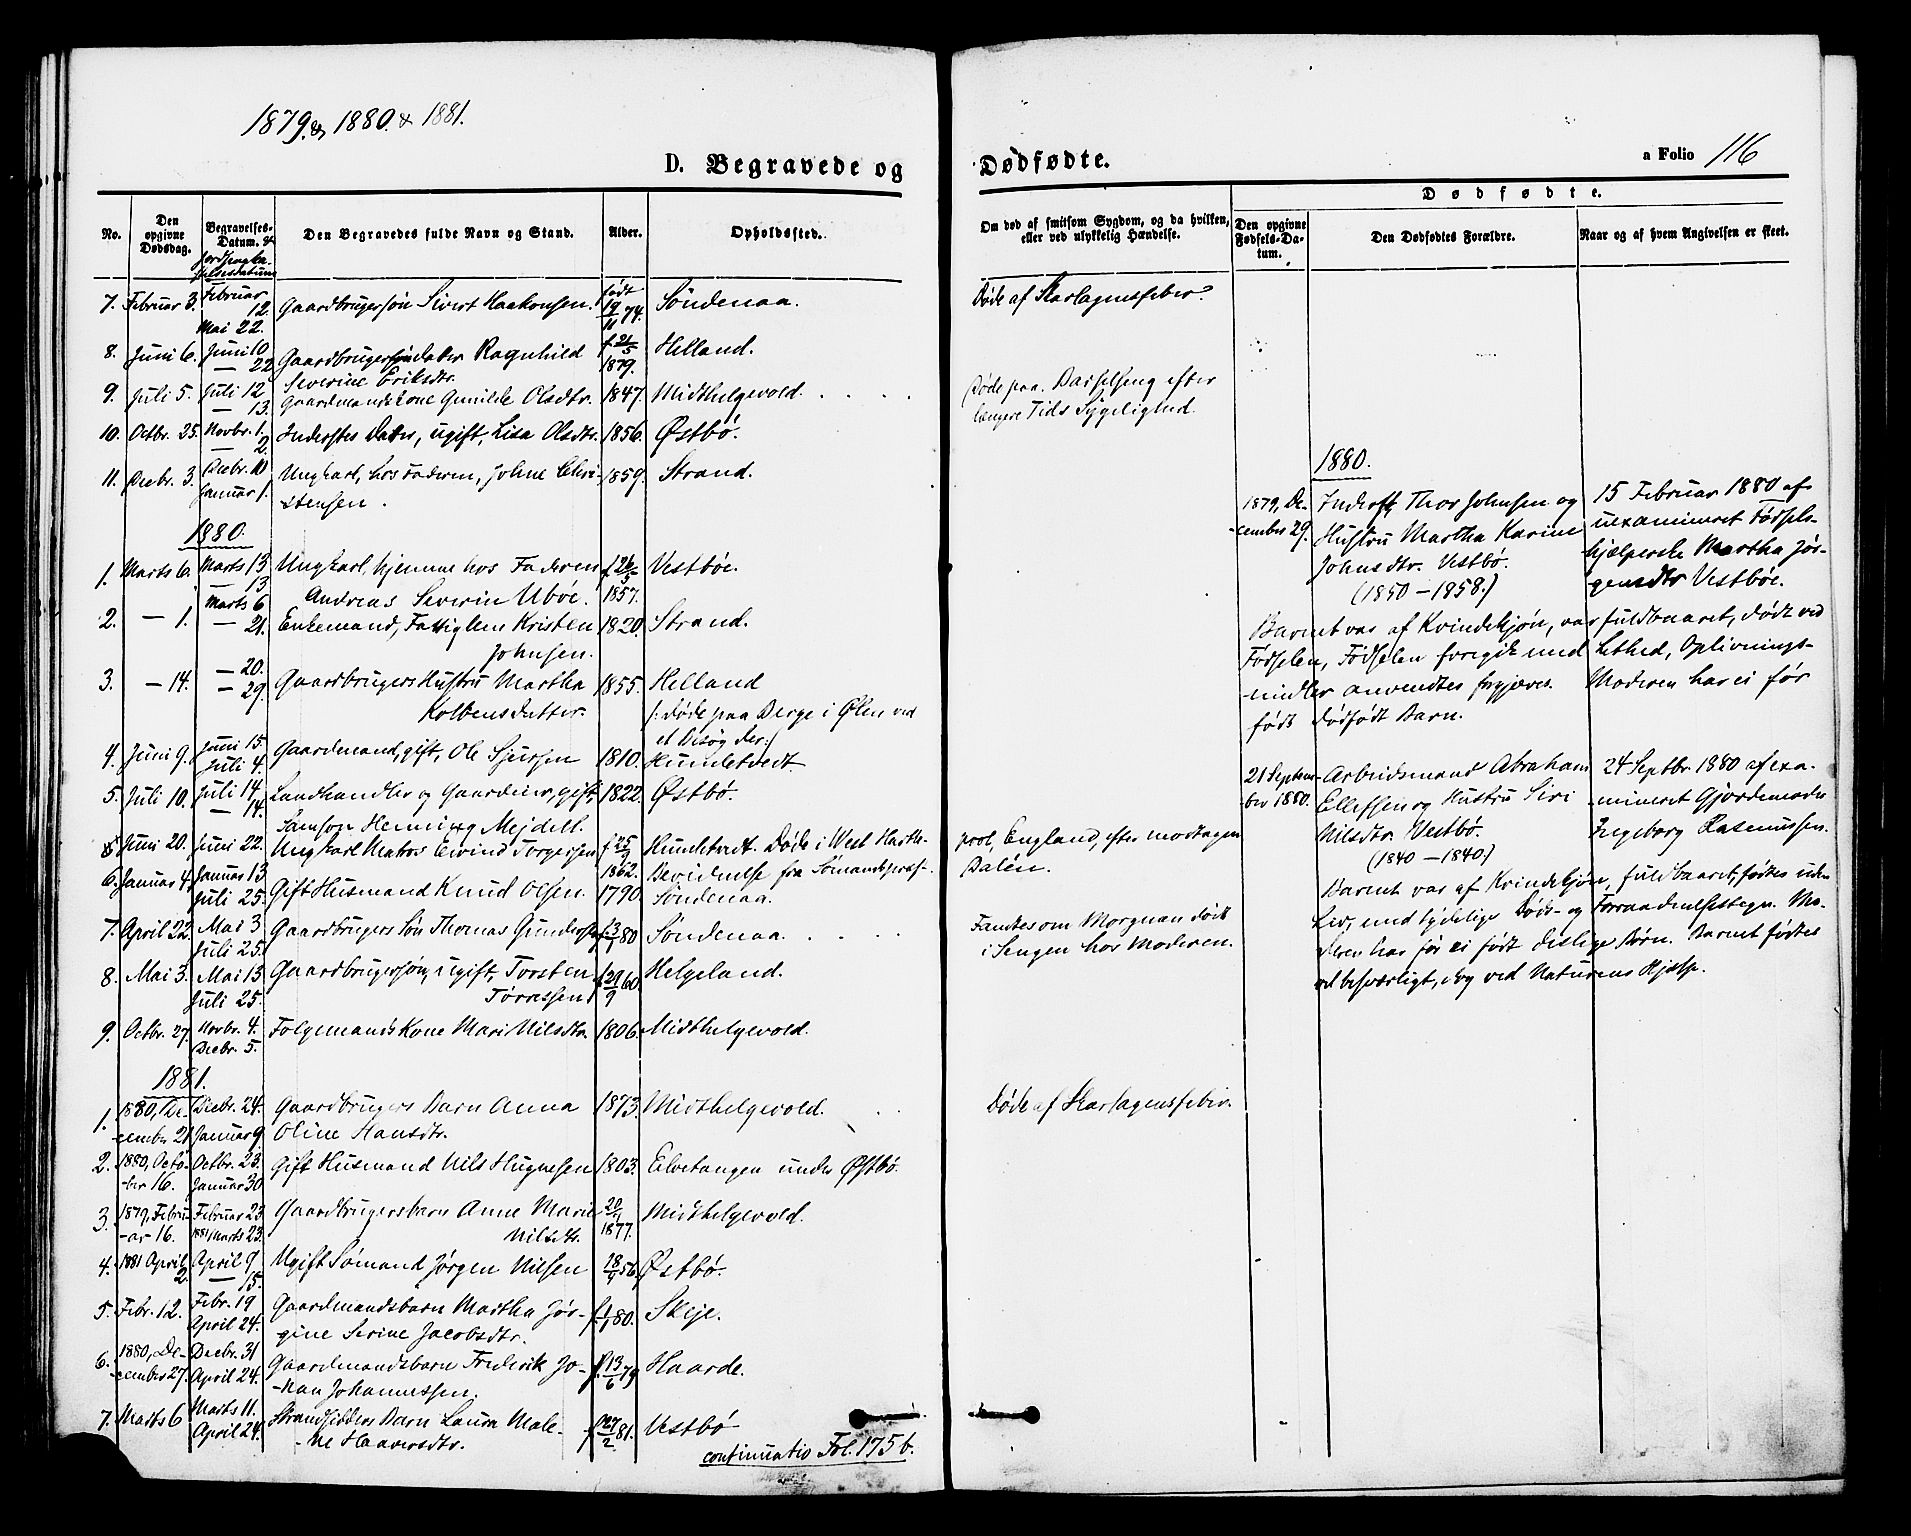 1879. & 1880. & 1881.
D. Begravede og
No.
Den opgivne Dødsdag.
Begravelses-Datum. &
Jordpaaka-
stelsesdatum
Den Begravedes fulde Navn og Stand.
Alder.
Opholdssted.
7. Februar 3. Februar 12. Mai 22. Gaardbrugersøn Sivert Haakonsen. født 19/11 74. Søndenaa.
8. Juni 6. Juni 10 — 22 Gaardbrugers Datter Ragnhild f. 21/5 1879. Helland.
Severine Eriksdtr.
9. Juli 5. Juli 12 — 13. Gaardmandskone Gunilde Olsdtr. 1847. Midthelgevold.
10. Octbr. 25. Novbr. 1. — 2. Inderstes Datter, ugift, Lisa Olsdtr. 1856. Østbø.
11. Decbr. 3. Decbr. 10 Januar 1. Ungkarl, hos Faderen, Johne Chri- 1859. Strand.
stensen.
1880.
1. Marts 6. Marts 13 — 13 Ungkarl, hjemme hos Faderen f. 26/5 1857. Vestbøe.
Andreas Severin Ubøe.
2. — 1. Marts 6 — 21. Enkemand, Fattiglem Kristen 1820. Strand.
Johnsen.
3. — 14. — 20. — 29. Gaardbrugers Hustru Martha 1855. Helland
Kolbensdatter. /: døde paa Berge i Ølen ved
et Besøg der:/
4. Juni 9. Juni 15. Juli 4. Gaardmand, gift, Ole Sjursen 1810. Hundetvedt.
5. Juli 10. Juli 14 — 14. Landhandler og Gaardeier, gift, 1822. Østbø.
Samson Henning Mejdell.
Juni 20. Juni 22. Ungkarl Matros Eivind Torgersen f. 25/9 1862. Hundetvedt. Døde i West Hartle-
6. Januar 4. Januar 13 Juli 25. Gift Husmand Knud Olsen. 1790. Søndenaa.
Bevidnelse fra Sømandspræ-
7. April 22. Mai 3 Juli 25. Gaardbrugers Søn Thomas Gunders f. 80 Søndenaa.
8. Mai 3. Mai 13 Juli 25. Gaardbrugersøn, ugift, Torsten f. 29/9 60. Helgeland.
Tørressen
9. Octbr. 27. Novbr. 4. Decbr. 5. Folgemands Kone Mari Nilsdtr. 1806. Midthelgevold.
1881.
1. 1880, De- Decbr. 24. Gaardbrugers Barn Anna 1873. Midthelgevold.
cember 21 Januar 9. Oline Hansdtr.
2. 1880, Octo- Octbr. 23. Gift Husmand Nils Hugnesen 1803. Elvetangen under Østbø.
ber 16. Januar 30.
3. 1879, Febru- Februar 23 Gaardbrugersbarn Anne Marie 1877. Midthelgevold.
ar 16. 1881 Marts 23. Nilsdtr.
4. 1881 April 2. April 9 — 15. Ugift Sømand Jørgen Nilsen 18/9 56. Østbø.
5. Febr. 12. Febr. 19 April 24. Gaardmandsbarn Martha Jør- f. 1/1 80. Skeje.
gine Serine Jacobsdtr.
6. 1880, De- Decbr. 31 Gaardmandsbarn Frederik Jo- f. 13/6 79 Haarde.
cember 27. April 24. han Johannessen.
7. Marts 6 Marts 11. April 24. Strandsidders Barn Laura Male- f. 27/2 81. Vestbø
ne Haaversdtr.
continuatio Fol. 175 b.
Dødfødte.
a Folio 116
Om død af smitsom Sygdom, og da hvilken, eller ved ulykkelig Hændelse.
Dødfødte.
Den opgivne Fødsels-Datum.
Den Dødfødtes Forældre.
Naar og af hvem Angivelsen er skeet.
Døde af Skarlagensfeber.
Døde paa Barselseng efter
længere Tids Sygelighed.
pool, England, efter modtagen
Dalén.
Fandtes om Morgnen død
i Sengen hos Moderen.
Døde af Skarlagensfeber.
1880.
1879, De-
cember 29.
Inderst, Thor Johnsen og
Hustru Martha Karine
Johnsdtr. Vestbø.
(1850 — 1858.)
15 Februar 1880 af
uexamineret Fødsels-
hjælperske Martha Jør-
gensdtr Vestbøe.
Barnet var af Kvindekjøn, var fuldbaaret, dødt ved
Fødselen, Fødselen foregik med Lethed, Oplivnings-
midler anvendtes forgjæves. Moderen har ei før
født dødfødt Barn.
21 Septem-
ber 1880.
Arbeidsmand Abraham
Ellefsen og Hustru Siri
Nilsdtr. Vestbø.
(1840 — 1840.)
24 Septbr. 1880 af exa-
mineret Gjordemoder
Ingeborg Rasmussen.
Barnet var af Kvindekjøn, fuldbaaret, fødtes uden
Liv, med tydelige Døds- og Forraadnelsestegn. Mo-
deren har før ei født dislige Børn. Barnet fødtes
vel besværligt, dog ved Naturens Hjælp.